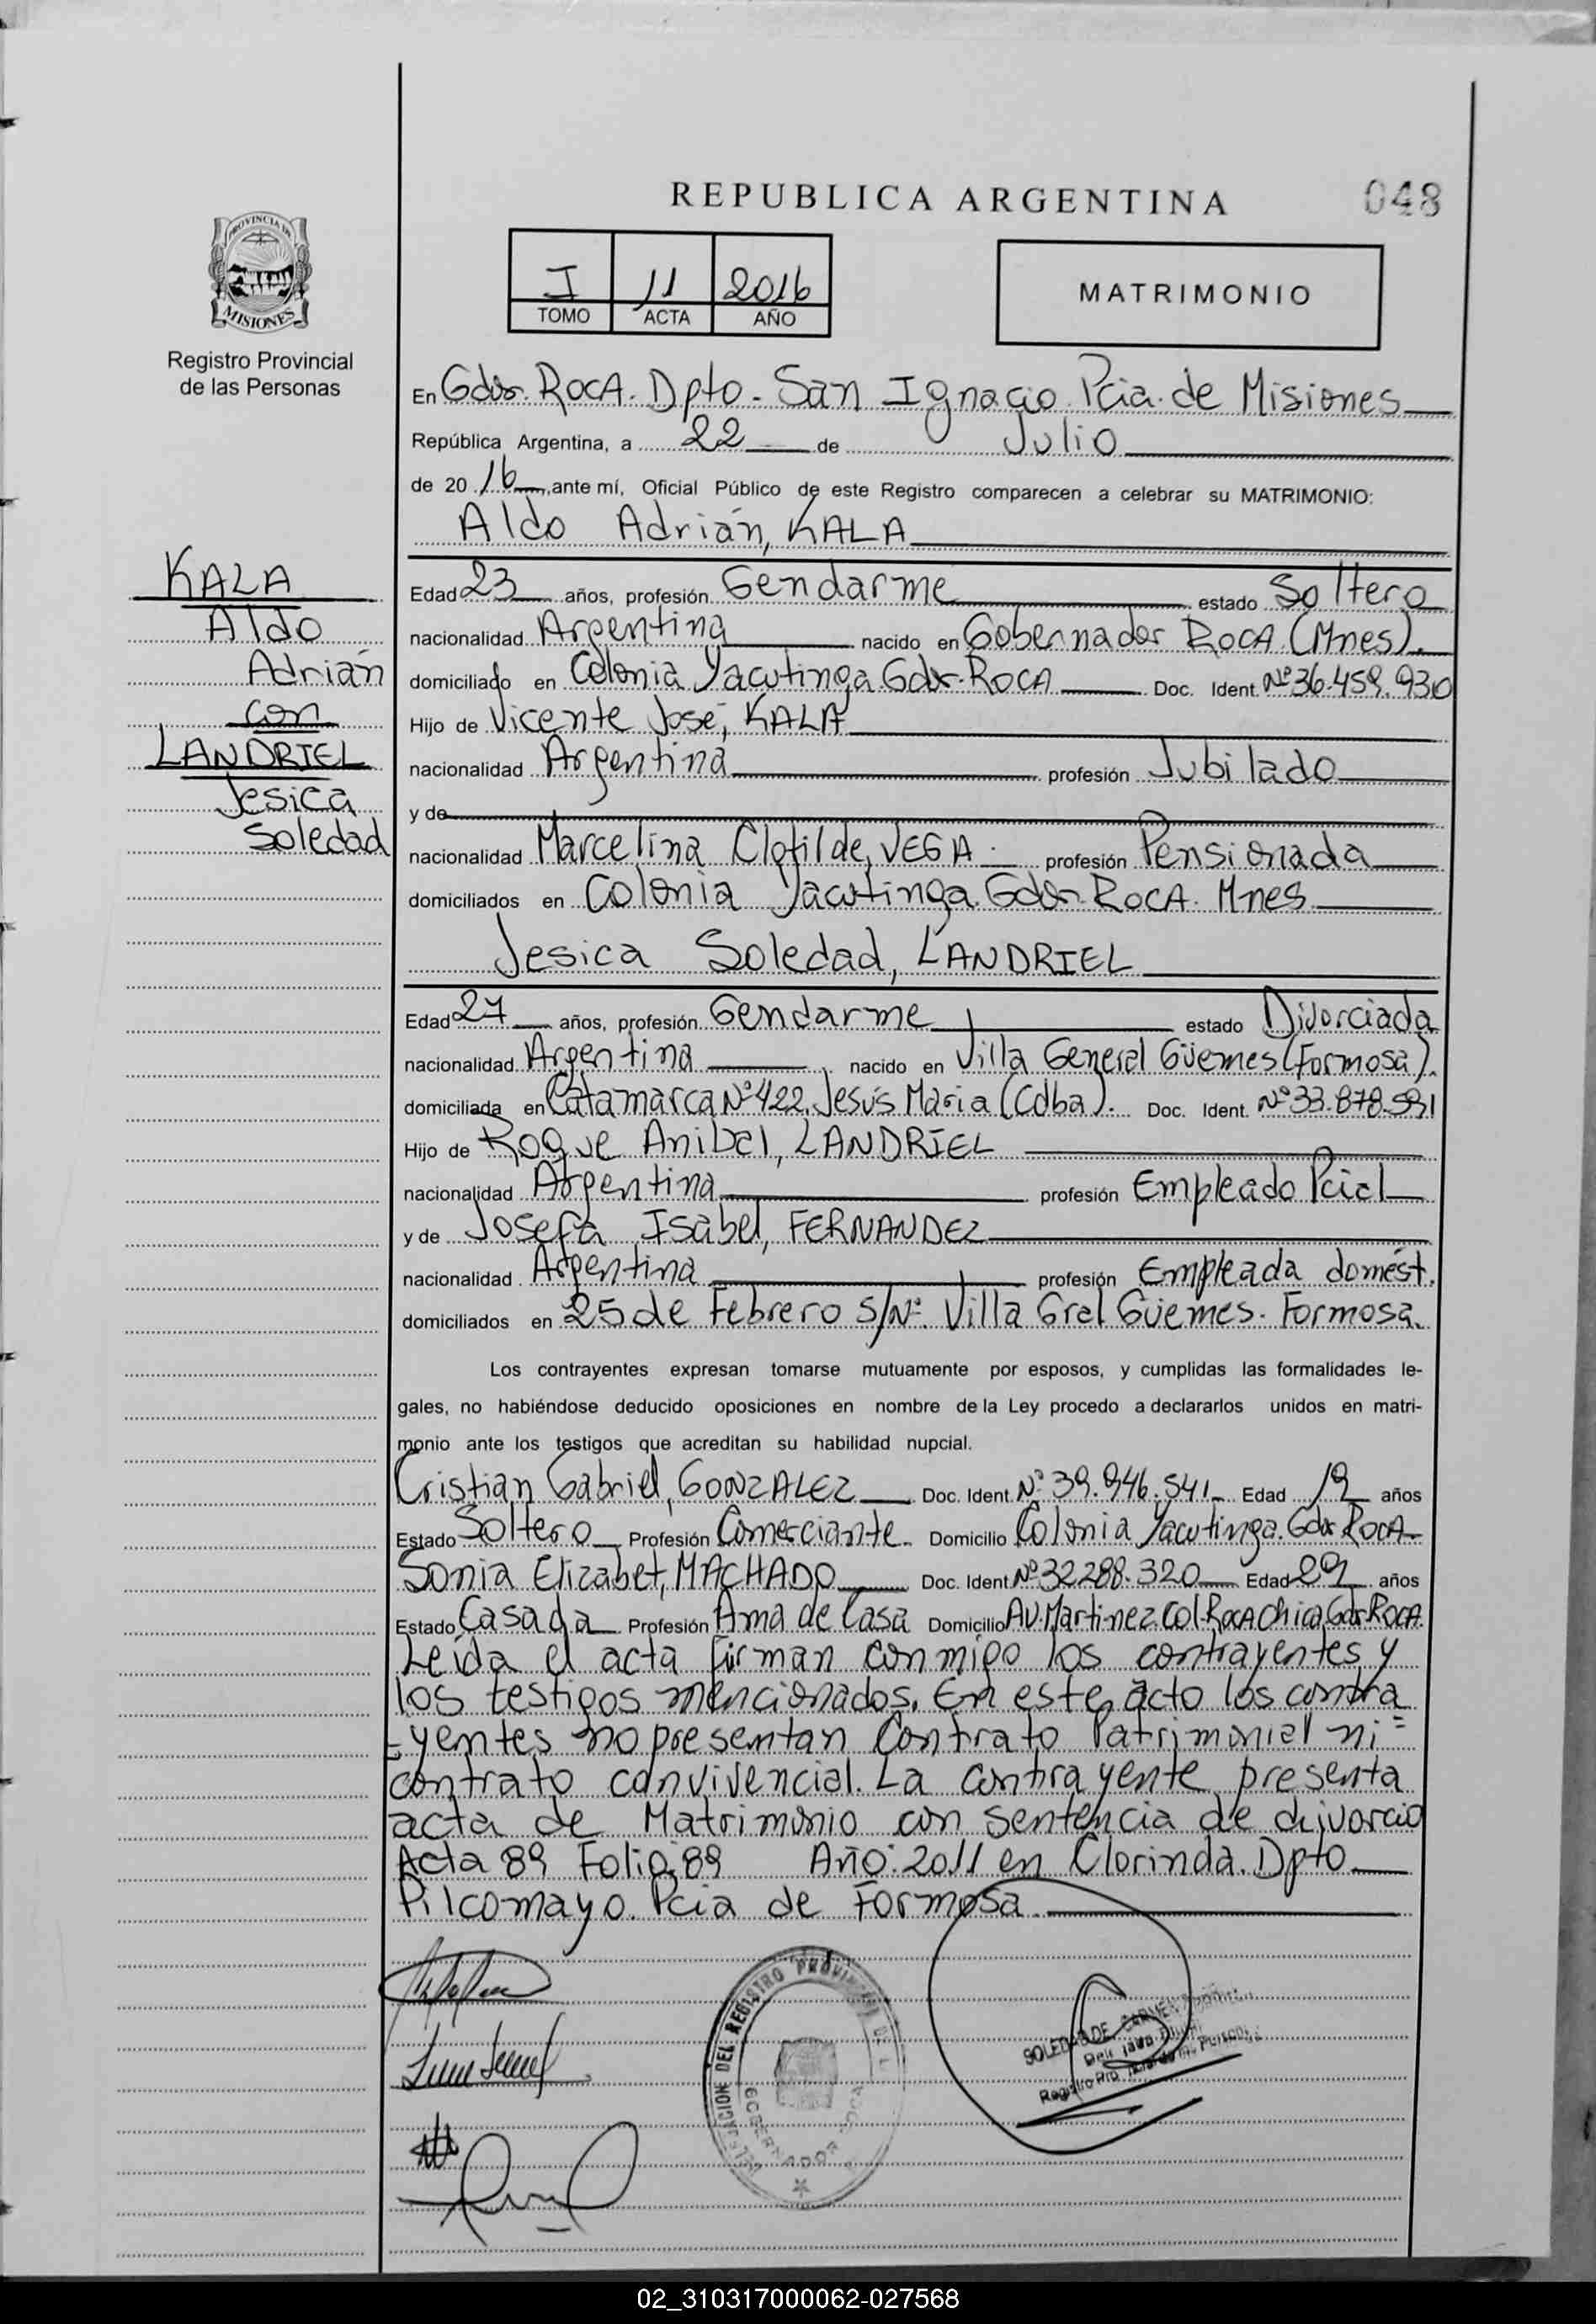 REPUBLICA ARGENTINA
048
PROVINCIA DE
MISIONES
Registro Provincial
de las Personas
I 11 2016
TOMO ACTA AÑO
MATRIMONIO
En Gdor. ROCA. Dpto. San Ignacio Pcia. de Misiones
República Argentina, a 22 de Julio
de 2016, ante mí, Oficial Público de este Registro comparecen a celebrar su MATRIMONIO:
Aldo Adrián, KALA
KALA
Aldo
Adrián
con
LANDRIEL
Jesica
Soledad
Edad 23 años, profesión Gendarme estado Soltero
nacionalidad Argentina nacido en Gobernador ROCA (Mnes).
domiciliado en Colonia Yacutinga Gdor. ROCA Doc. Ident. Nº 36.459.930
Hijo de Vicente José, KALA
nacionalidad Argentina profesión Jubilado
y de
nacionalidad Marcelina Clotilde, VEGA profesión Pensionada
domiciliados en Colonia Yacutinga Gdor. ROCA. Mnes
Jesica Soledad, LANDRIEL
Edad 27 años, profesión Gendarme estado Divorciada
nacionalidad Argentina nacido en Villa General Güemes (Formosa).
domiciliada en Catamarca Nº 422. Jesús María (Cdba). Doc. Ident. Nº 33.878.591
Hijo de Roque Anibal, LANDRIEL
nacionalidad Argentina profesión Empleado Pcial
y de Josefa Isabel, FERNANDEZ
nacionalidad Argentina profesión Empleada domést.
domiciliados en 25 de Febrero S/Nº. Villa Gral Güemes. Formosa.
Los contrayentes expresan tomarse mutuamente por esposos, y cumplidas las formalidades le-
gales, no habiéndose deducido oposiciones en nombre de la Ley procedo a declararlos unidos en matri-
monio ante los testigos que acreditan su habilidad nupcial.
Cristian Gabriel, GONZALEZ Doc. Ident. Nº 39.946.541 Edad 19 años
Estado Soltero Profesión Comerciante. Domicilio Colonia Yacutinga. Gdor ROCA
Sonia Elizabet, MACHADO Doc. Ident. Nº 32.288.320 Edad 29 años
Estado Casada Profesión Ama de Casa Domicilio AV. Martinez Col. ROCA Chica Gdor ROCA.
Leída el acta firman conmigo los contrayentes y
los testigos mencionados. En este acto los contra
-yentes no presentan Contrato Patrimonial ni =
contrato convivencial. La contrayente presenta
acta de Matrimonio con sentencia de divorcio
Acta 89 Folio 89 Año: 2011 en Clorinda. Dpto
Pilcomayo. Pcia de Formosa.
DELEGACION DEL REGISTRO PROVINCIAL DE L
GOBERNADOR ROCA
SOLEDAD DE CARMEN
Registro
02_310317000062-027568